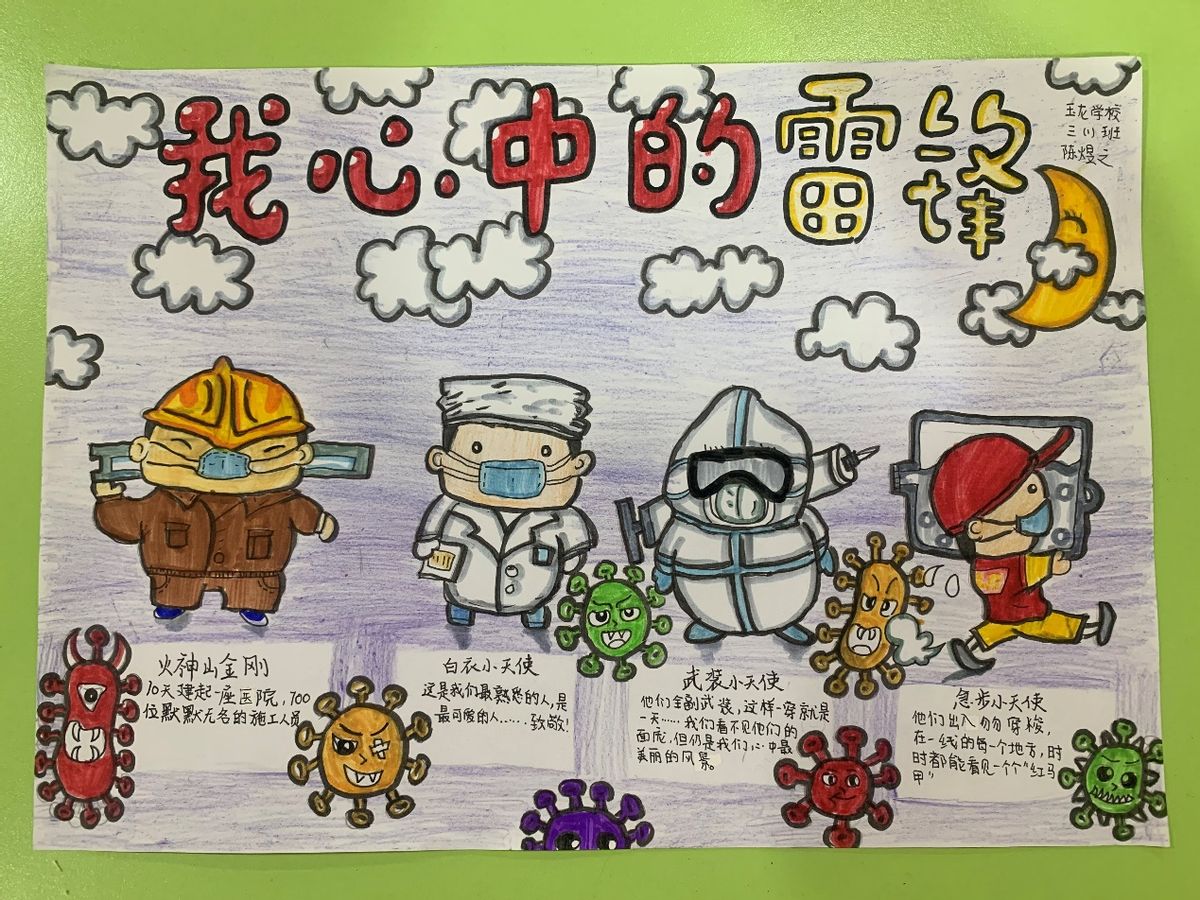 我心中的雷锋
玉龙学校
三(1)班
陈煜之
火神山金刚
10天建起一座医院,700
位默默无名的施工人员
白衣小天使
这是我们最熟悉的人,是
最可爱的人……致敬!
武装小天使
他们全副武装,这样一穿就是
一天……我们看不见他们的
面庞,但仍是我们心中最
美丽的风景。
急步小天使
他们出入匆匆穿梭,
在一线的每个地方,时
时都能看见一个个"红马
甲"